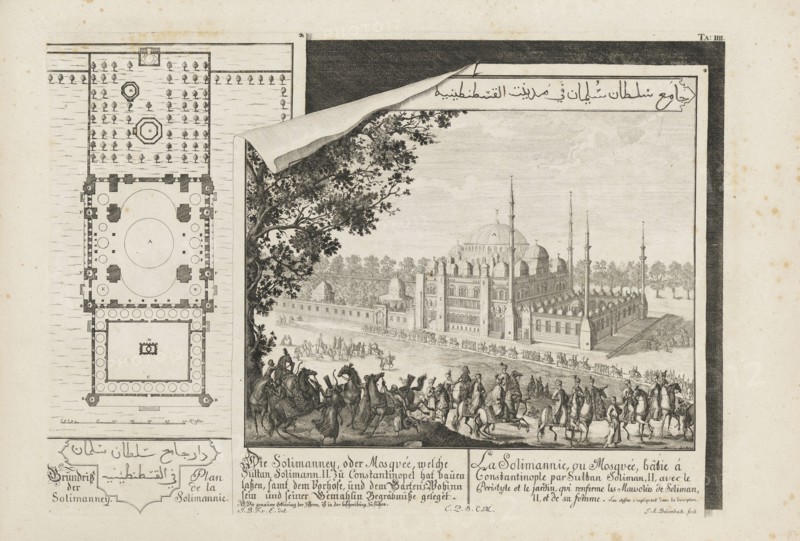 TA: IIII.
جامع سلطان سليمان في مدينت القسطنطينية
Die Solimanney, oder Mosquée, welche
Sultan Solimann. II. zü Constantinopel hat bauen
laßen, samt dem Vorhofe, und dem Garten, Wohinn
sein und seiner Gemahlin Begräbnüße geleget.
J. B. F. v. E. del.
C. P. S. C. M.
La Solimannie, ou Mosquée, bâtie à
Constantinople par Sultan Soliman, II. avec le
Peristyle et le jardin, qui renferme les Mausolées de Soliman,
II, et de sa femme.
سلطان سلمان
في القسطنطينية
Grundriß
der
Solimanney.
Plan
de la
Solimannie.
A